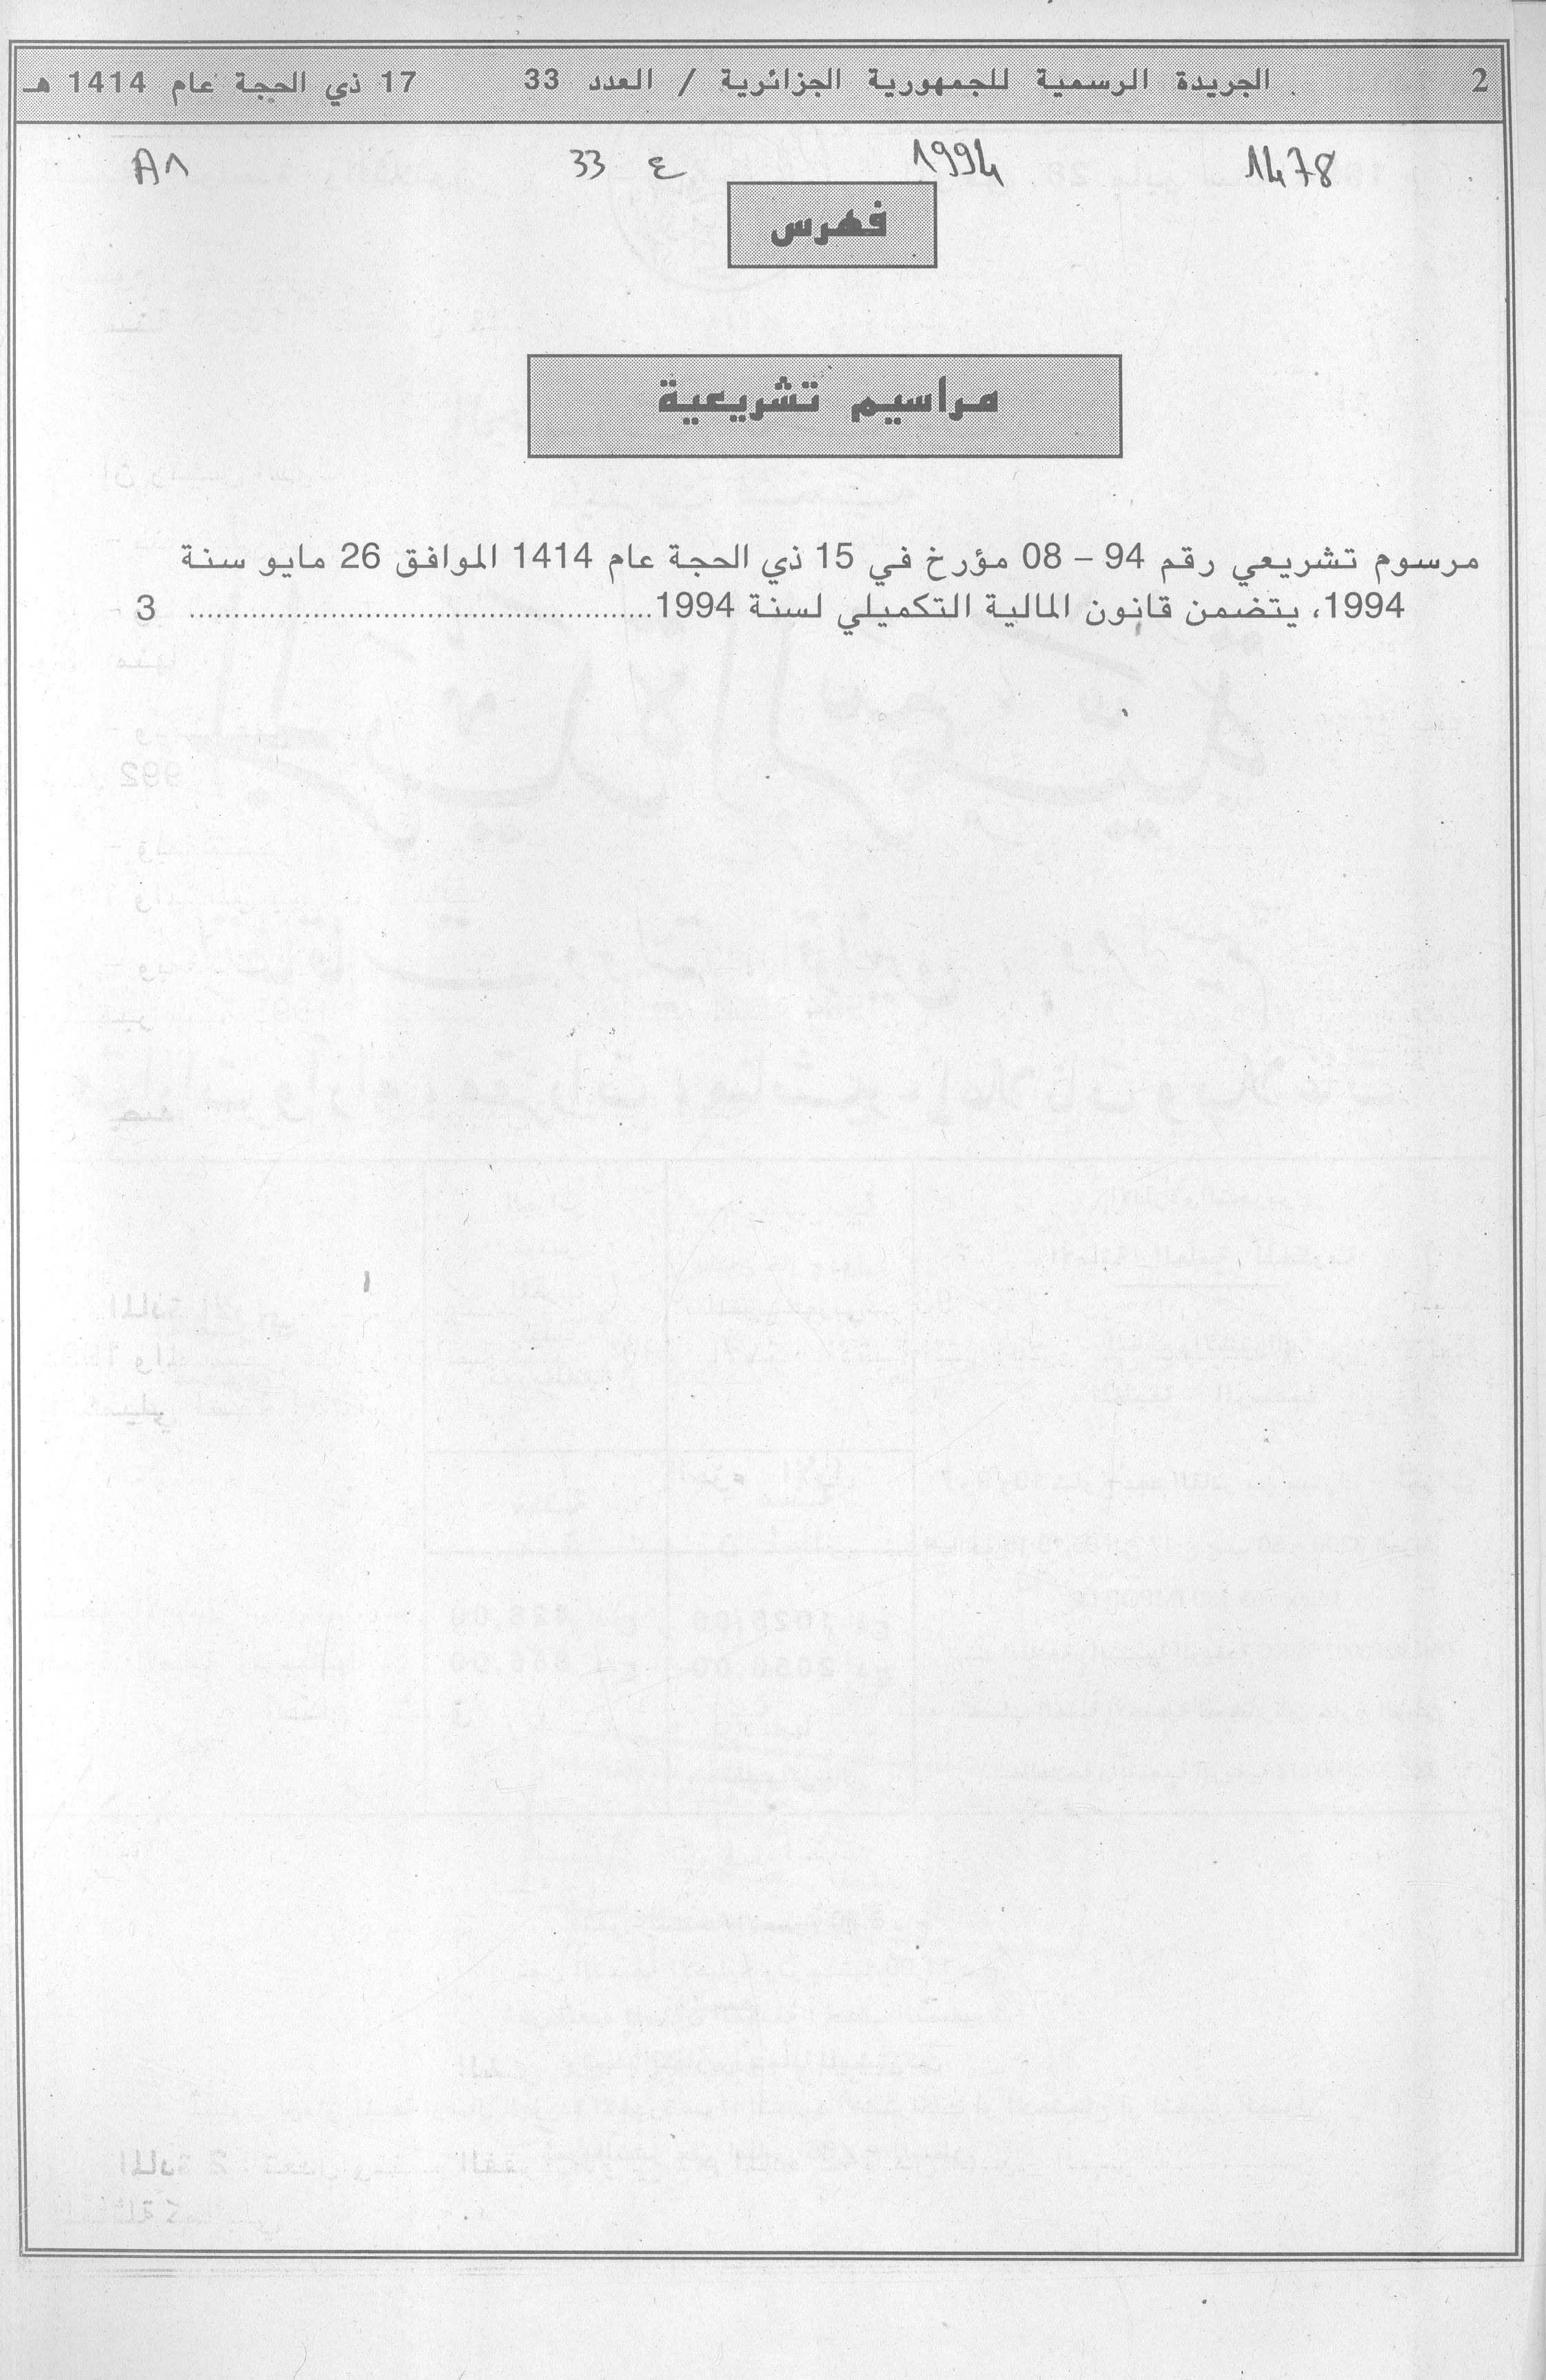 2 الجريدة الرسمية للجمهورية الجزائرية / العدد 33 17 ذي الحجة عام 1414 هـ
1478 1994 ع 33 A1
فهرس
مراسيم تشريعية
مرسوم تشريعي رقم 94 - 08 مؤرخ في 15 ذي الحجة عام 1414 الموافق 26 مايو سنة
1994، يتضمن قانون المالية التكميلي لسنة 1994.................................................... 3